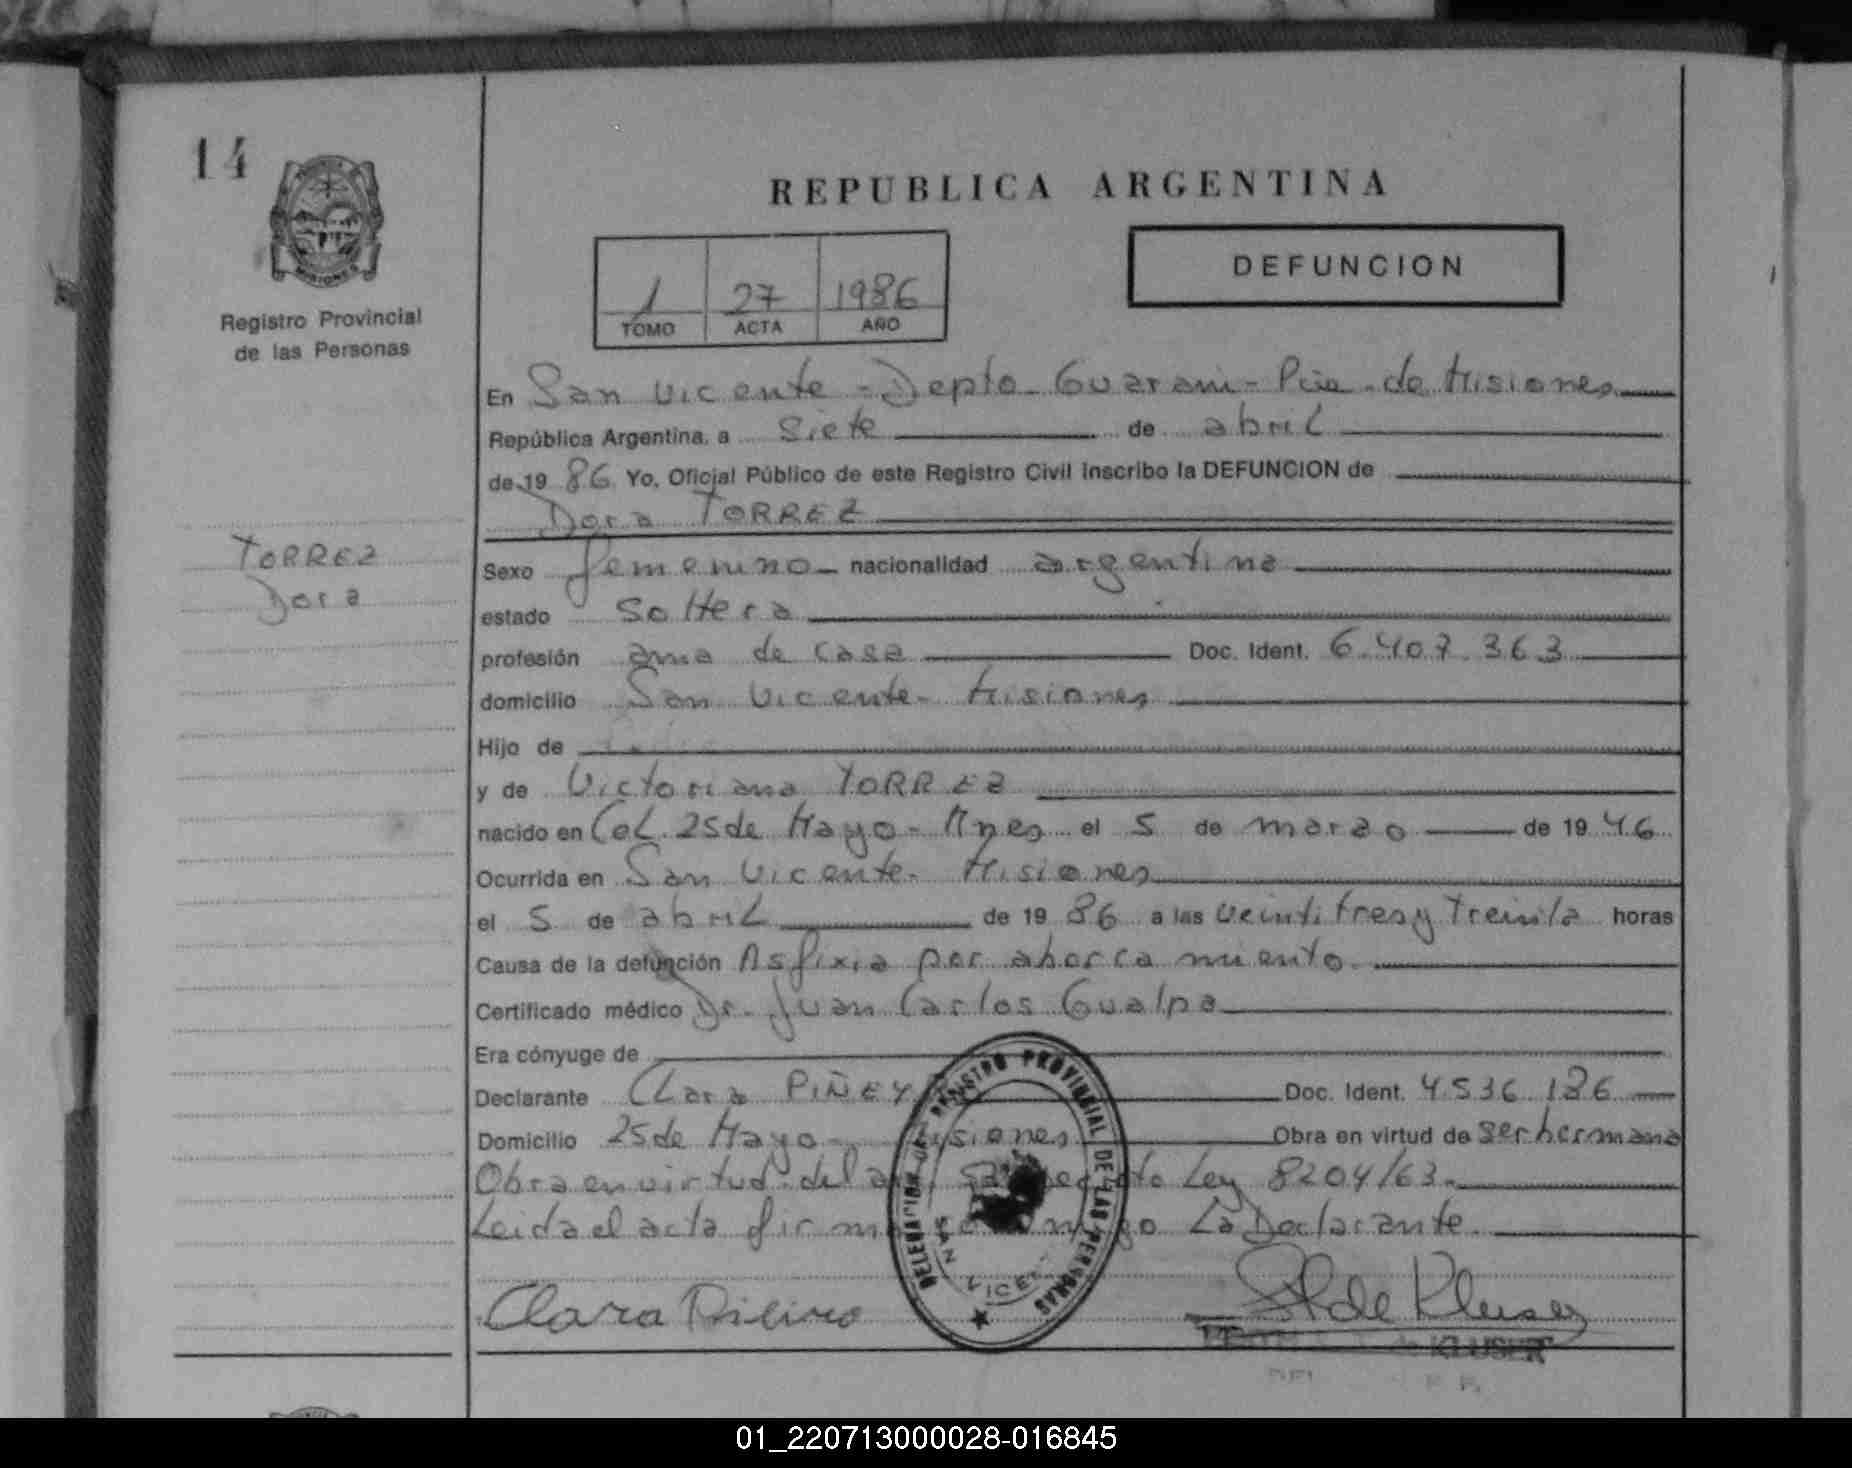 14
MISIONES
Registro Provincial
de las Personas
TORREZ
Dora
REPUBLICA ARGENTINA
1 27 1986
TOMO ACTA AÑO
DEFUNCION
En San Vicente - Depto. Guarani - Pcia. de Misiones
República Argentina, a siete de abril
de 19 86 Yo, Oficial Público de este Registro Civil inscribo la DEFUNCION de
Dora TORREZ
Sexo femenino nacionalidad argentina
estado soltera
profesión ama de casa Doc. Ident. 6.407.363
domicilio San Vicente - Misiones
Hijo de
y de Victoriana TORREZ
nacido en Col. 25 de Mayo - Mnes el 5 de marzo de 19 46
Ocurrida en San Vicente - Misiones
el 5 de abril de 19 86 a las veintitres y treinta horas
Causa de la defunción Asfixia por ahorcamiento.
Certificado médico Dr. Juan Carlos Gualpa
Era cónyuge de
Declarante Clara PIÑEY Doc. Ident. 4.536.186
Domicilio 25 de Mayo - Misiones Obra en virtud de ser hermana
Obra en virtud del Ley 8204/63.
Leida el acta La Declarante.
DELEGACION REGISTRO PROVINCIAL DE LAS PERSONAS
SAN VICENTE
Clara
de KLUSER
01_220713000028-016845